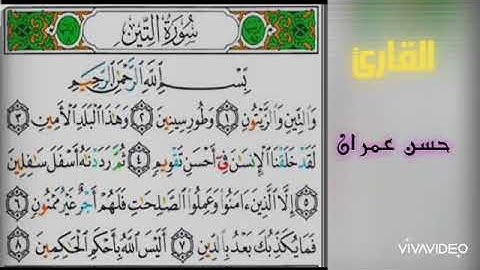 سُورَةُ التِّينِ
بِسْمِ اللَّهِ الرَّحْمَٰنِ الرَّحِيمِ
وَالتِّينِ وَالزَّيْتُونِ ١ وَطُورِ سِينِينَ ٢ وَهَٰذَا الْبَلَدِ الْأَمِينِ ٣
لَقَدْ خَلَقْنَا الْإِنسَٰنَ فِي أَحْسَنِ تَقْوِيمٍ ٤ ثُمَّ رَدَدْنَٰهُ أَسْفَلَ سَٰفِلِينَ
٥ إِلَّا الَّذِينَ ءَامَنُوا وَعَمِلُوا الصَّٰلِحَٰتِ فَلَهُمْ أَجْرٌ غَيْرُ مَمْنُونٍ ٦
فَمَا يُكَذِّبُكَ بَعْدُ بِالدِّينِ ٧ أَلَيْسَ اللَّهُ بِأَحْكَمِ الْحَٰكِمِينَ ٨
القارئ
حسن عمران
VIVAVIDEO